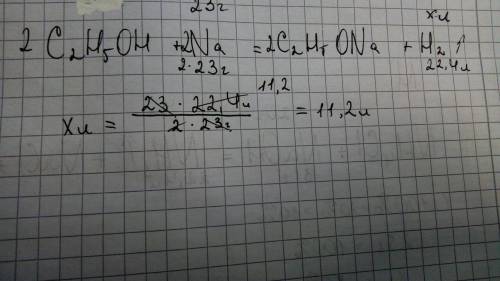 23г
хл
2 C₂H₅OH + 2Na = 2C₂H₅ONa + H₂ ↑
2·23г 22,4л
11,2
хл = 23 · 22,4л / 2 · 23г = 11,2л